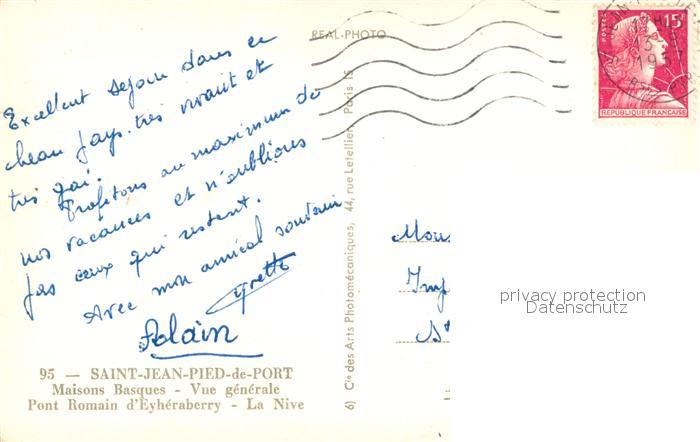 REAL-PHOTO
POSTES
15F
REPUBLIQUE FRANÇAISE
Excellent séjour dans ce
beau pays très vivant et
très gai.
Profitons au maximum de
nos vacances et n'oublions
pas ceux qui restent.
Avec mon amical souvenir
Yvette
Alain
95 — SAINT-JEAN-PIED-de-PORT
Maisons Basques - Vue générale
Pont Romain d'Eyhéraberry - La Nive
6) Cie des Arts Photomécaniques, 44, rue Letellier, Paris-15
privacy protection
Datenschutz